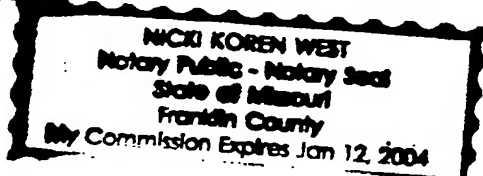 NICKI KOREN WEST
Notary Public - Notary Seal
State of Missouri
Franklin County
My Commission Expires Jan 12, 2004